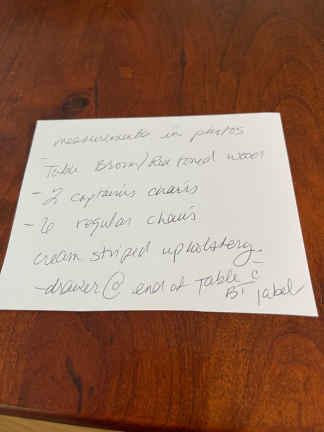 measurements in photos
- Table Brown/Red toned wood
- 2 captains chairs
- 6 regular chairs
cream striped upholstery.
- drawer @ end of Table c̄
BT label